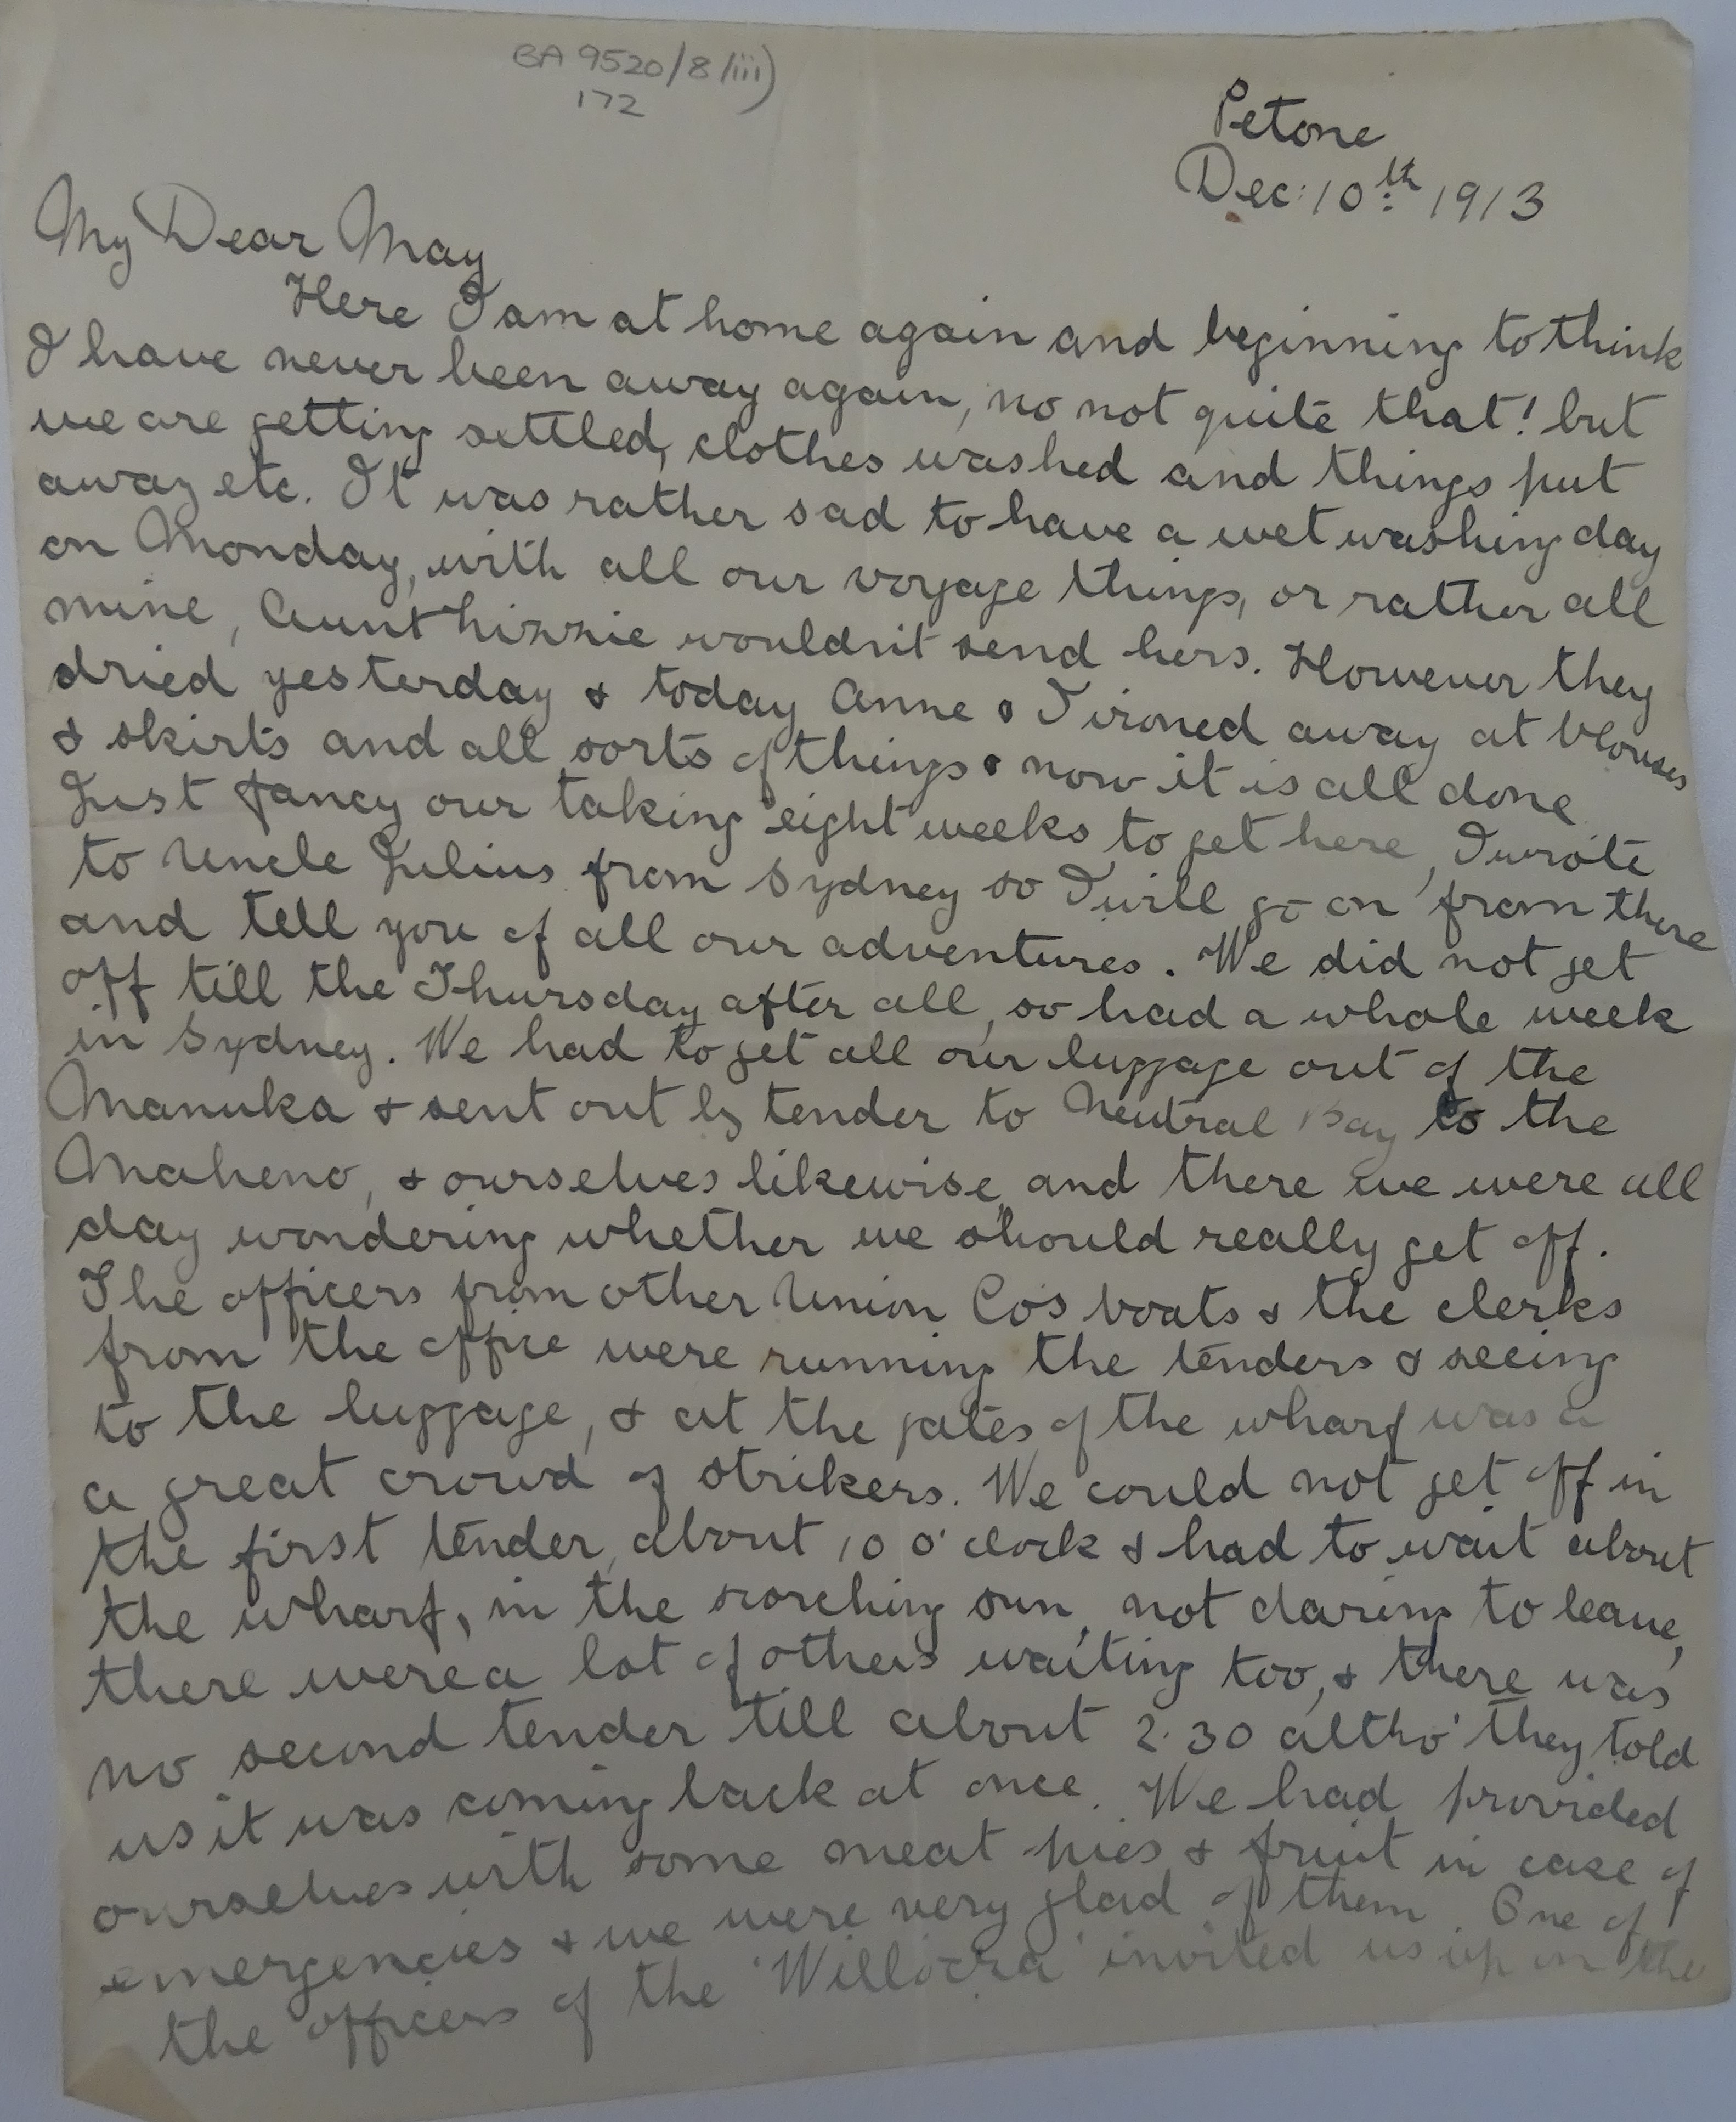 BA 9520/8/iii)
172
Petone
Dec: 10th 1913
My Dear May
Here I am at home again and beginning to think
I have never been away again, no not quite that! but
we are getting settled, clothes washed and things put
away etc. It was rather sad to have a wet washing day
on Monday, with all our voyage things, or rather all
mine, Aunt Lizzie wouldn't send hers. However they
dried yesterday & today Anne & I ironed away at blouses
& skirts and all sorts of things & now it is all done
Just fancy our taking eight weeks to get here, I wrote
to Uncle Julius from Sydney so I will go on from there
and tell you of all our adventures. We did not get
off till the Thursday after all, so had a whole week
in Sydney. We had to get all our luggage out of the
Manuka & sent out by tender to Neutral Bay to the
Maheno, & ourselves likewise, and there we were all
day wondering whether we should really get off.
The officers from other Union Co's boats & the clerks
from the office were running the tenders & seeing
to the luggage, & at the gates of the wharf was a
a great crowd of strikers. We could not get off in
the first tender, about 10 o'clock & had to wait about
the wharf, in the scorching sun, not daring to leave,
there were a lot of others waiting too, & there was
no second tender till about 2.30 altho' they told
us it was coming back at once. We had provided
ourselves with some meat pies & fruit in case of
emergencies & we were very glad of them. One of
the officers of the 'Willocra' invited us up on the